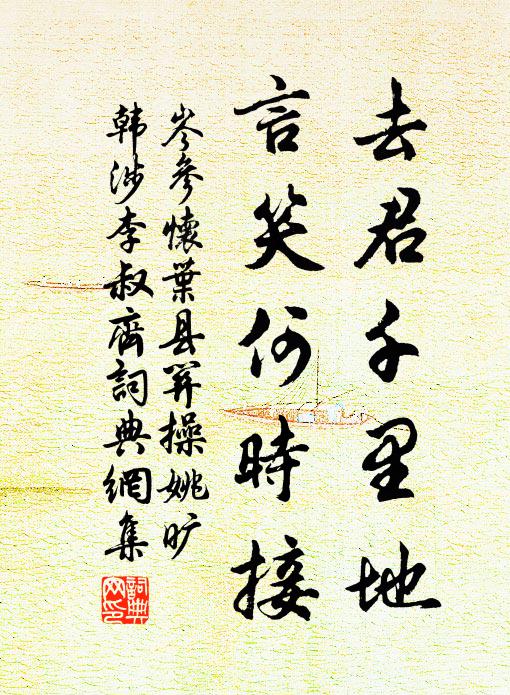 去君千里地
言笑何時接
岑參懷葉县関操姚旷
韩涉李叔齊詞典網集
詞典网印